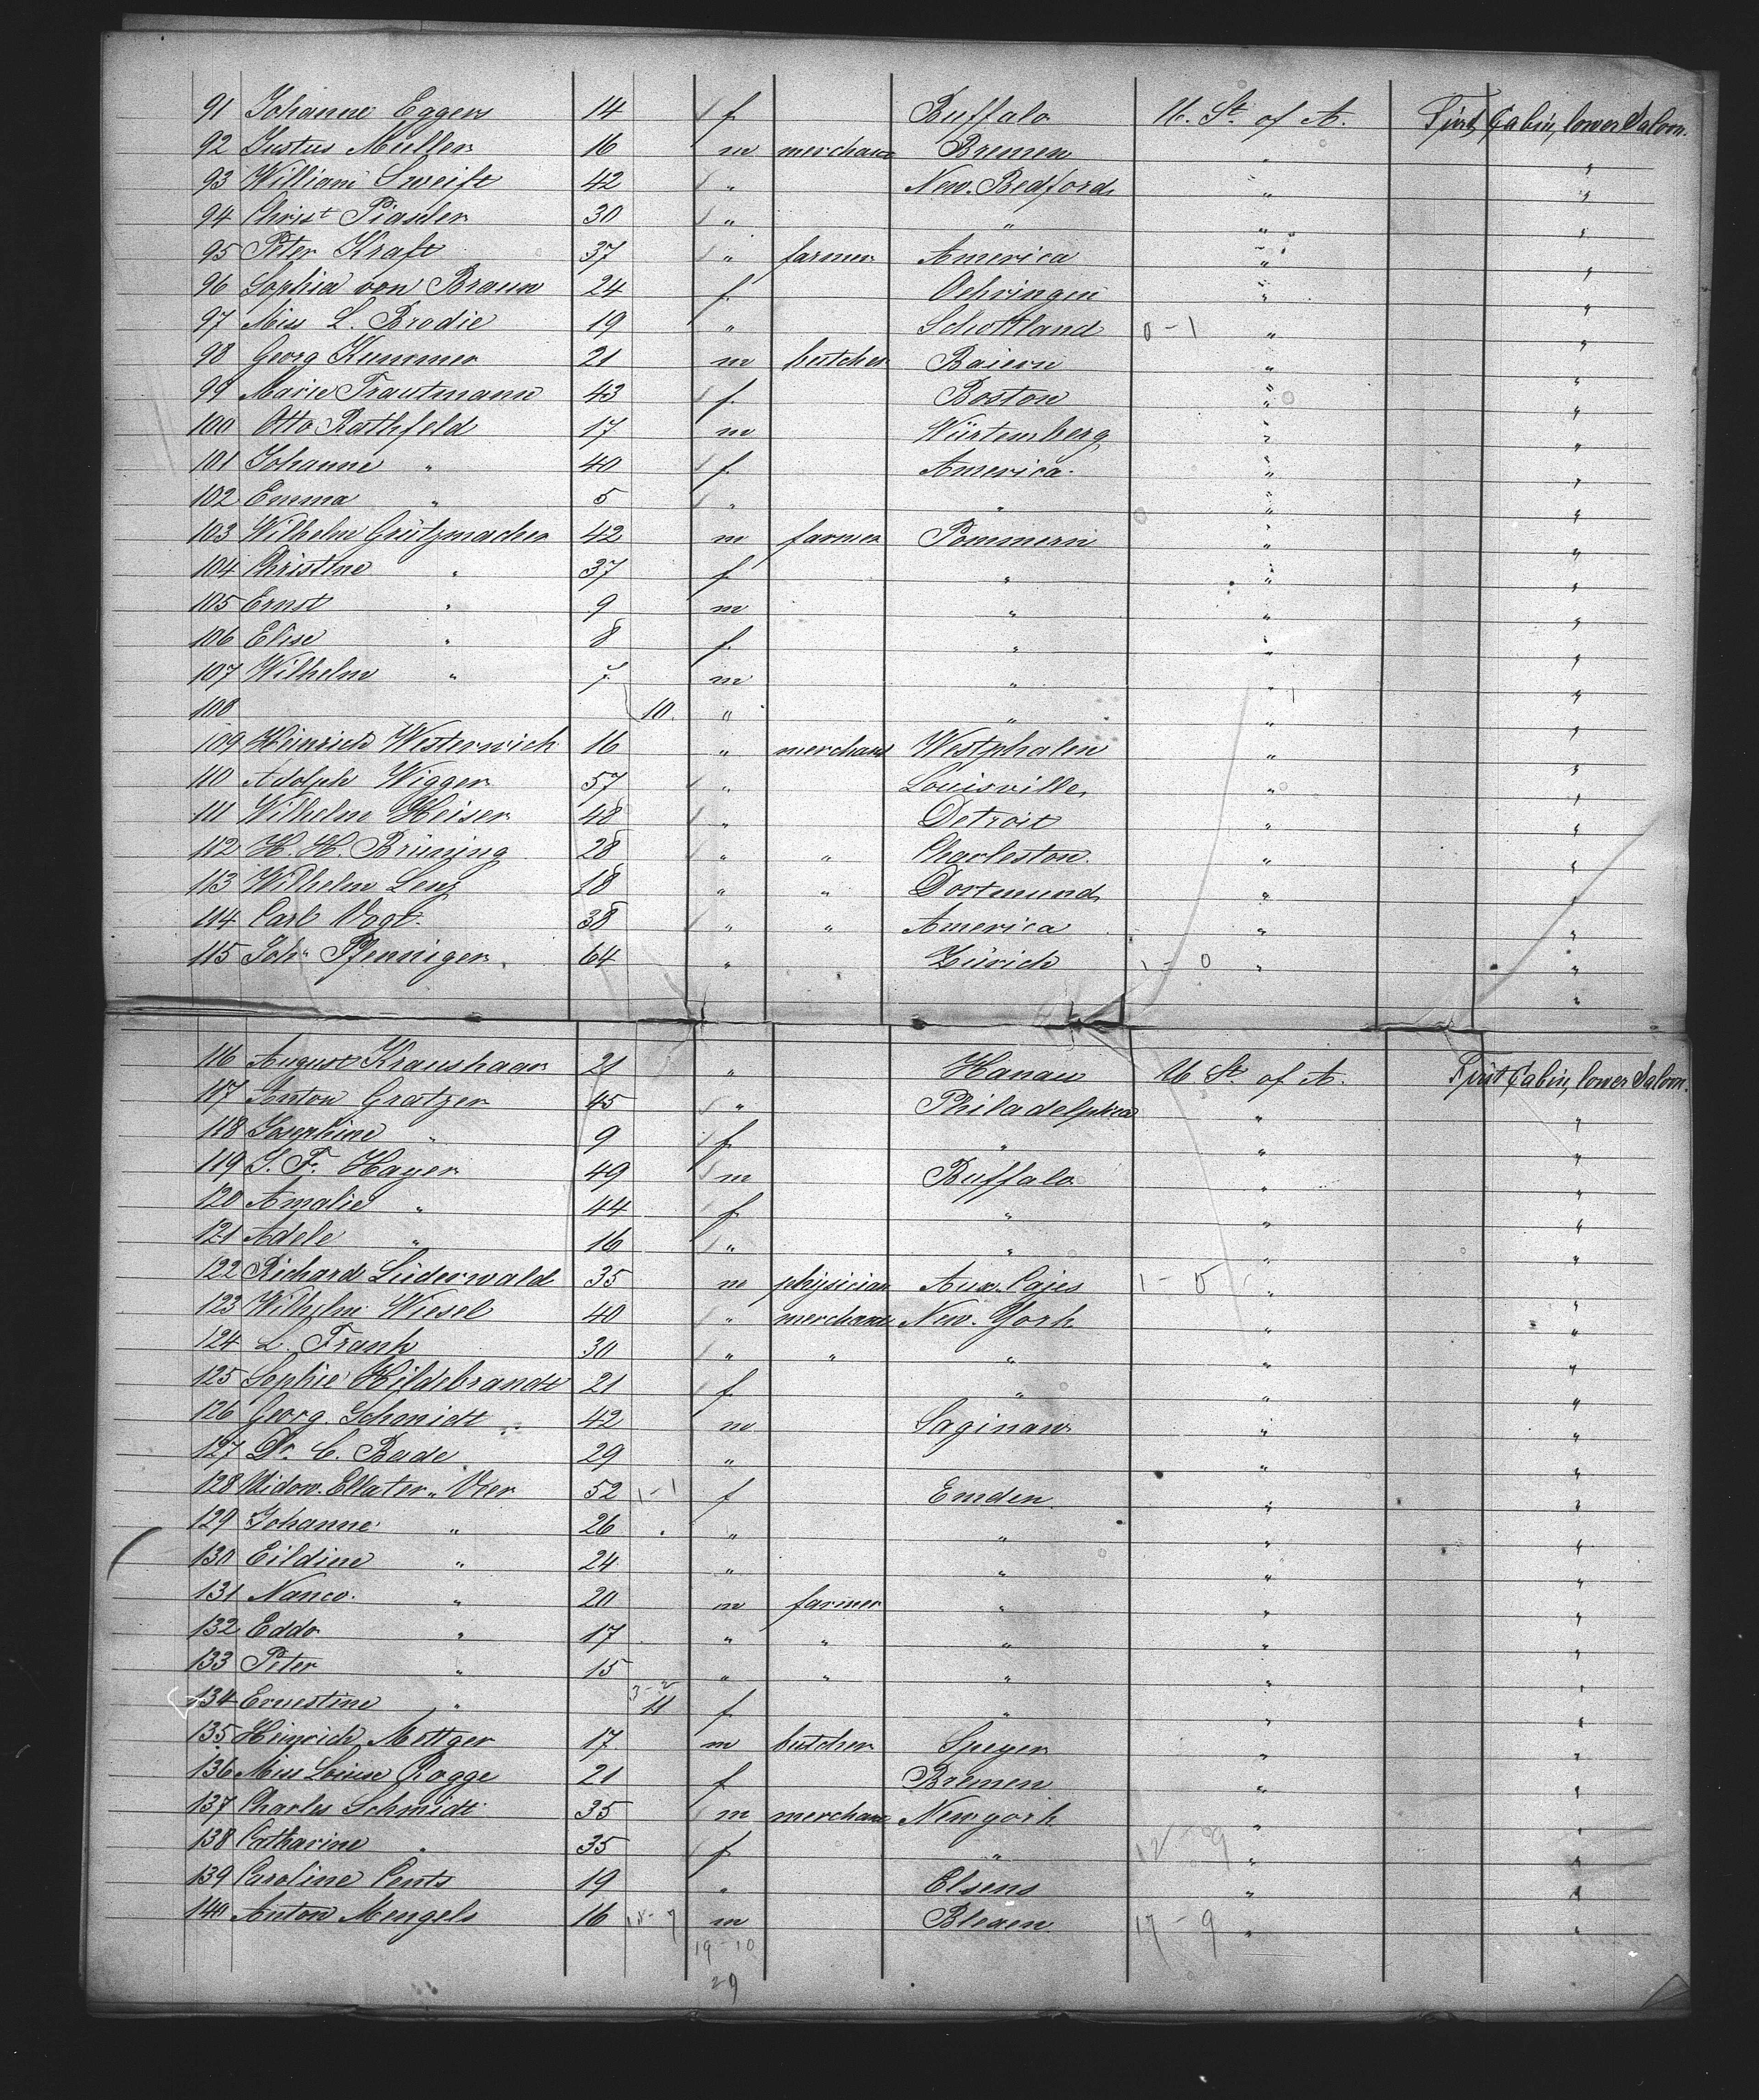 91 Johanne Eggers 14 f Buffalo U. St. of A. First Cabin, lower Saloon.
92 Justus Müller 16 m merchant Bremen " "
93 William Sweift 42 " New. Bedford " "
94 Christ Piauler 30 " " " "
95 Peter Kraft 37 " farmer America " "
96 Sophia von Braun 24 f Oehringen " "
97 Miss L. Brodie 19 " Schottland 0-1 " "
98 Georg Kummer 21 m butcher Baiern " "
99 Marie Trautmann 43 f Boston " "
100 Otto Rathfeld 17 m Würtemberg " "
101 Johanne " 40 f America. " "
102 Emma " 5 " " " "
103 Wilhelm Grützmacher 42 m farmer Pommern " "
104 Christine " 37 f " " "
105 Ernst " 9 m " " "
106 Elise " 8 f " " "
107 Wilhelm " 7 m " " "
108 10. " " " "
109 Heinrich Westerwich 16 " merchant Westphalen " "
110 Adolph Wigger 57 " Louisville " "
111 Wilhelm Heiser 48 " Detroit " "
112 H. H. Brüning 28 " " Charleston. " "
113 Wilhelm Lenz 18 " " Dortmund " "
114 Carl Vogt. 38 " " America " "
115 Joh. Pfenniger 64 " Zürich 1-0 " "
"
116 August Kraushaar 21 " Hanau U. St. of A. First Cabin, lower Saloon.
117 Anton Gratzer 45 " Philadelphia " "
118 Josephine " 9 f " " "
119 J. F. Hayer 49 m Buffalo " "
120 Amalie " 44 f " " "
121 Adele " 16 " " " "
122 Richard Lüderwald 35 m physician Aux. Cajes 1-0 " "
123 Wilhelm Wiesel 40 " merchant New. York " "
124 L. Frank 30 " " " " "
125 Sophie Hildebrandt 21 f " " "
126 Georg Schmidt 42 m Saginaw " "
127 Dr. C. Bade 29 " " "
128 Widow. Ellater " Vier 52 1-1 f Emden " "
129 Johanne " 26 " " " "
130 Eildine " 24 " " " "
131 Nanco. " 20 m farmer " " "
132 Eddo " 17 " " " " "
133 Peter " 15 " " " " "
134 Ernestine " 3-2 11 f " " "
135 Heinrich Mettger 17 m butcher Speyer " "
136 Miss Louise Rogge 21 f Bremen " "
137 Charles Schmidt 35 m merchant Newyork " "
138 Catharine " 35 f " 12-9 " "
139 Caroline Cents 19 " Elsens " "
140 Anton Mengels 16 m Blexen 17-9 " "
19-10
29